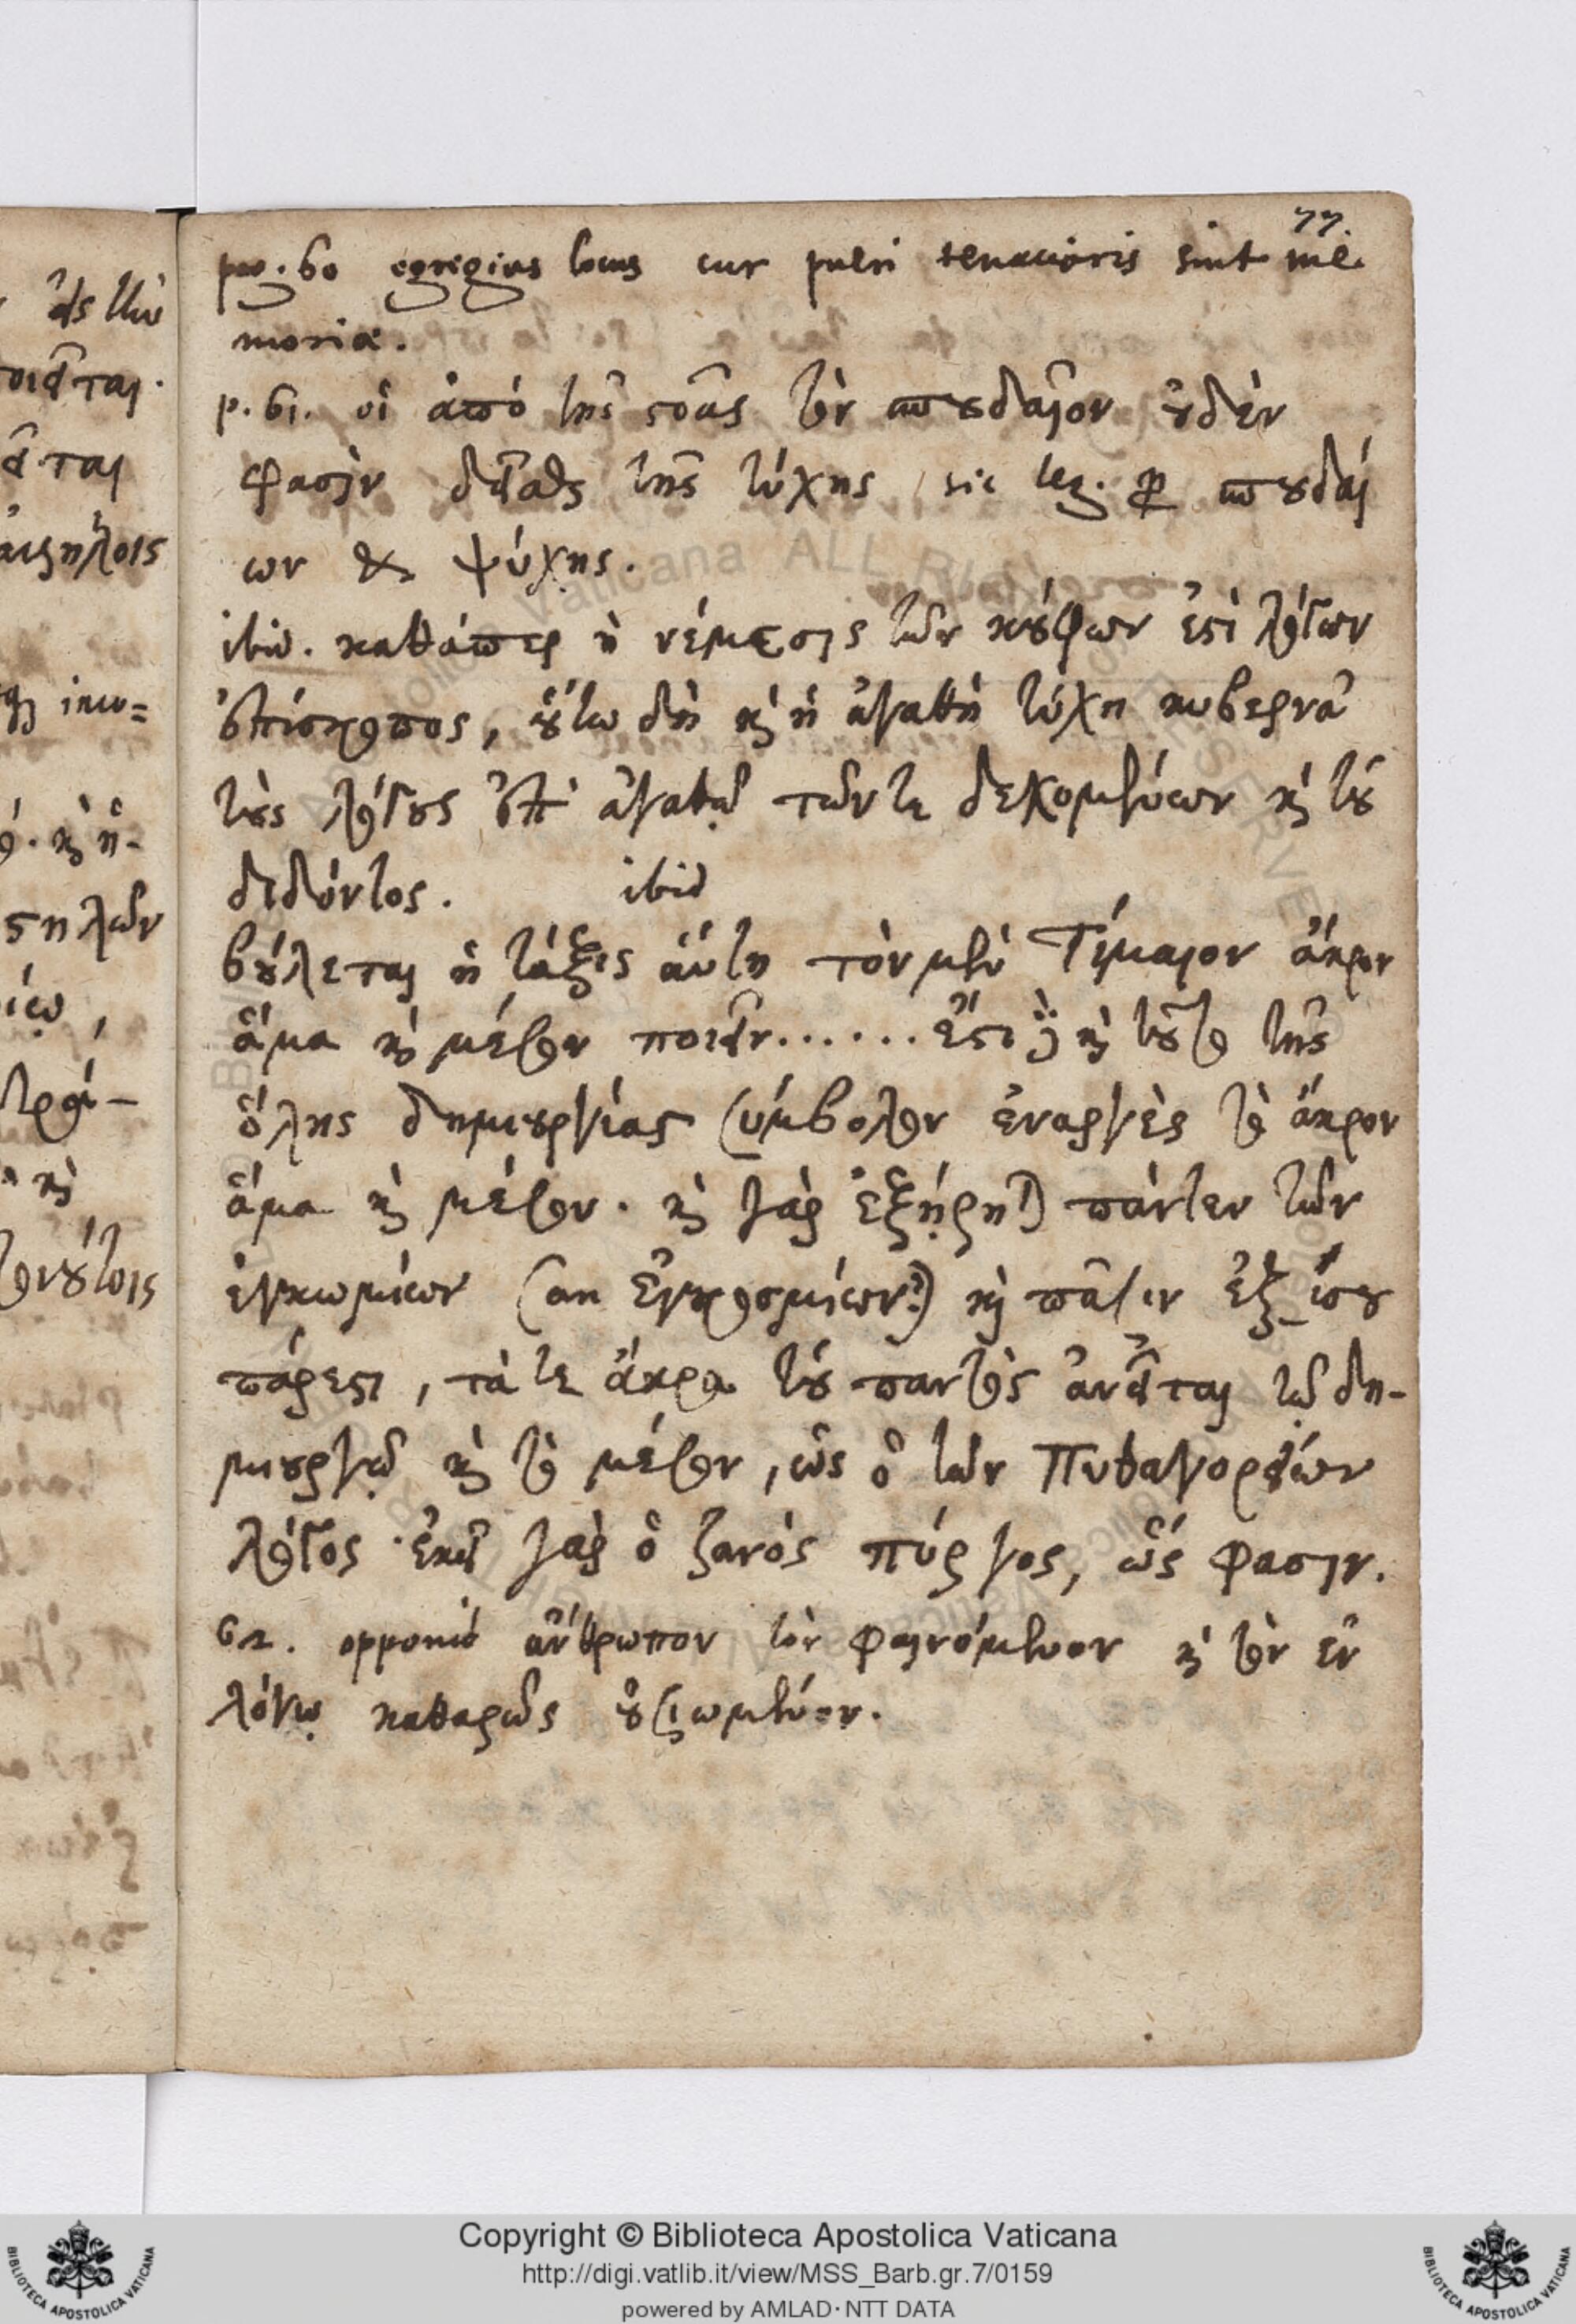 77.
pag. 60 egregius locus cur pueri tenacioris sint me
moriæ.
p. 61. οἱ ἀπὸ τῆς στοᾶς τὸν σπουδαῖον οὐδὲν
φασὶν δεῖσθαι τῆς τύχης / sic leg. pro σπουδαί
ων & ψύχης.
ibid. καθάπερ ἡ νέμεσις τῶν κούφων ἐστὶ λόγων
ἐπίσκοπος, οὕτω δὴ καὶ ἡ ἀγαθὴ τύχη κυβερνᾶ
τοὺς λόγους ἐπ' ἀγαθῷ τῶν τε δεχομένων καὶ τοῦ
διδόντος. ibid
βούλεται ἡ τάξις αὕτη τὸν μὲν Τίμαιον ἄκρον
ἅμα καὶ μέσον ποιεῖν....... ἔστι δὲ καὶ τοῦτο τῆς
ὅλης δημιουργίας σύμβολον ἐναργὲς τὸ ἄκρον
ἅμα καὶ μέσον. καὶ γὰρ ἐξῄρηται πάντων τῶν
ἐγκωμίων (an ἐγκοσμίων?) καὶ πᾶσιν ἐξ ἴσου
πάρεστι, τά τε ἄκρα τοῦ παντὸς ἀνεῖται τῷ δη-
μιουργῷ καὶ τὸ μέσον, ὡς ὁ τῶν Πυθαγορείων
λόγος· ἐκεῖ γὰρ ὁ ζανὸς πύργος, ὥς φασιν.
62. opponit ἄνθρωπον τὸν φαινόμενον καὶ τὸν ἐν
λόγῳ καθαρῶς οὐσιωμένον.
ἀϊζήλοις
Copyright © Biblioteca Apostolica Vaticana
http://digi.vatlib.it/view/MSS_Barb.gr.7/0159
powered by AMLAD·NTT DATA
BIBLIOTECA APOSTOLICA VATICANA
BIBLIOTECA APOSTOLICA VATICANA